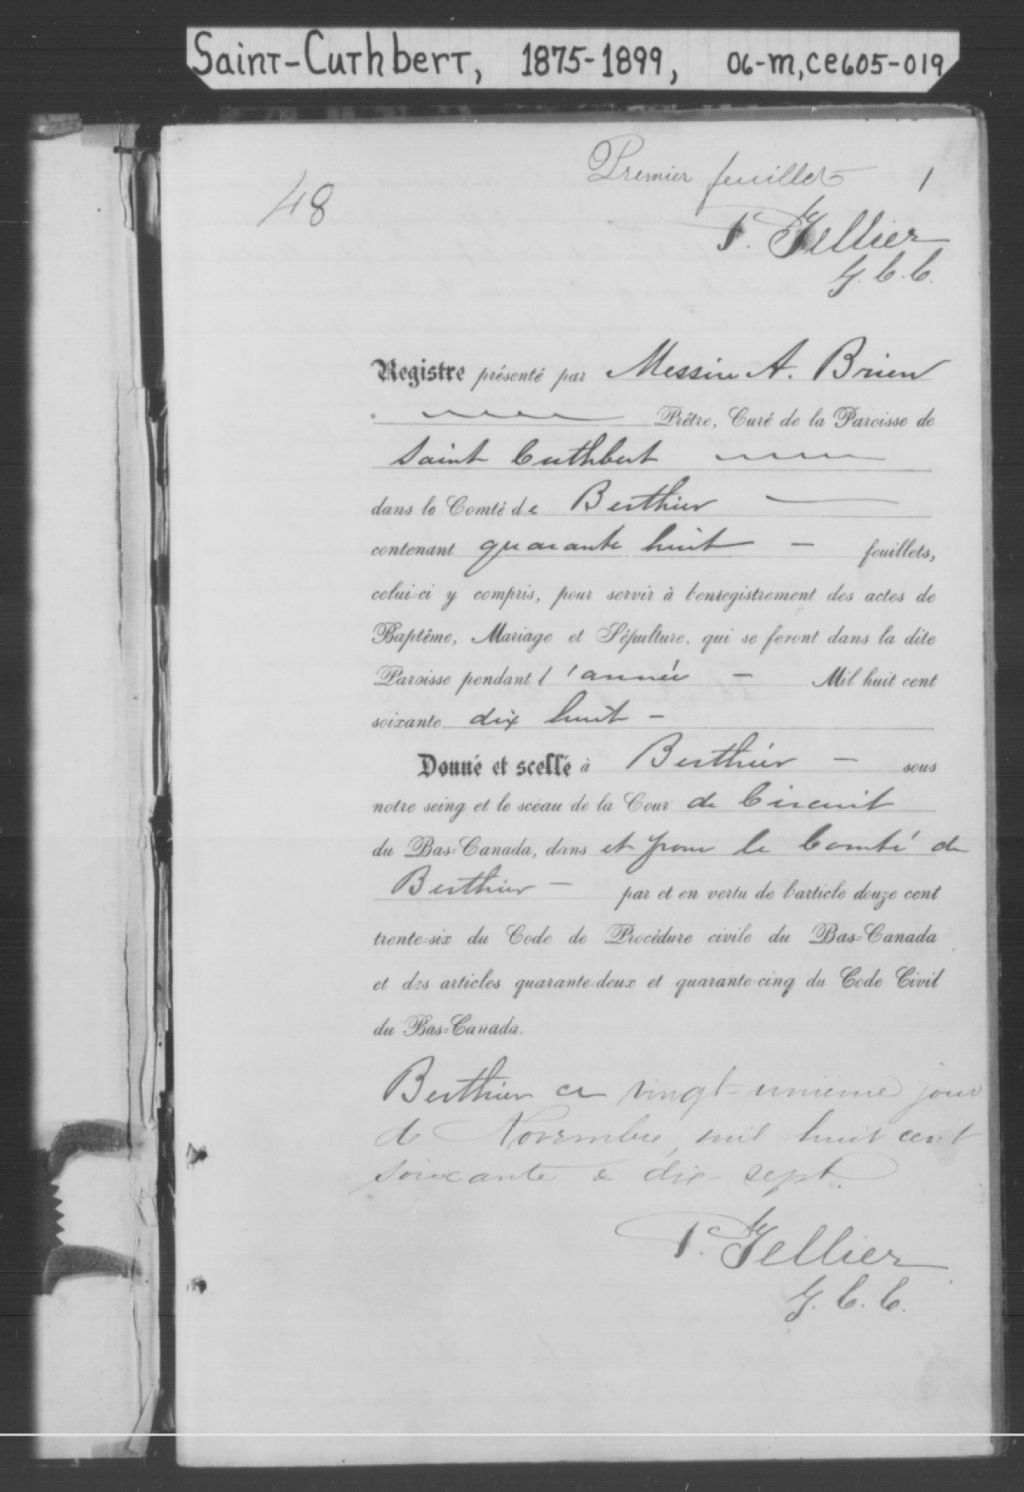 Saint-Cuthbert, 1875-1899, 06-m, ce605-019
Premier feuillet 1
48
P. Tellier
G. C. C.
Registre présenté par Messire A. Brien
Prêtre, Curé de la Paroisse de
Saint Cuthbert
dans le Comté de Berthier
contenant quarante huit – feuillets,
celui-ci y compris, pour servir à l'enregistrement des actes de
Baptême, Mariage et Sépulture, qui se feront dans la dite
Paroisse pendant l'année – Mil huit cent
soixante dix huit –
Donné et scellé à Berthier – sous
notre seing et le sceau de la Cour de Circuit
du Bas-Canada, dans et pour le Comté de
Berthier – par et en vertu de l'article douze cent
trente-six du Code de Procédure civile du Bas-Canada
et des articles quarante-deux et quarante-cinq du Code Civil
du Bas-Canada.
Berthier ce vingt-unième jour
de Novembre, mil huit cent
soixante & dix-sept.
P. Tellier
G. C. C.